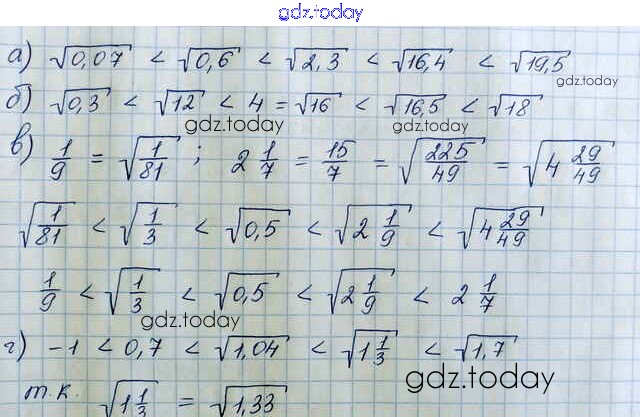 gdz.today
а) √0,07 < √0,6 < √2,3 < √16,4 < √19,5
gdz.today
б) √0,3 < √12 < 4 = √16 < √16,5 < √18
gdz.today gdz.today
в) 1/9 = √(1/81) ; 2 1/7 = 15/7 = √(225/49) = √(4 29/49)
√(1/81) < √(1/3) < √0,5 < √(2 1/9) < √(4 29/49)
1/9 < √(1/3) < √0,5 < √(2 1/9) < 2 1/7
gdz.today
г) -1 < 0,7 < √1,04 < √(1 1/3) < √1,7
gdz.today
т.к. √(1 1/3) = √1,33